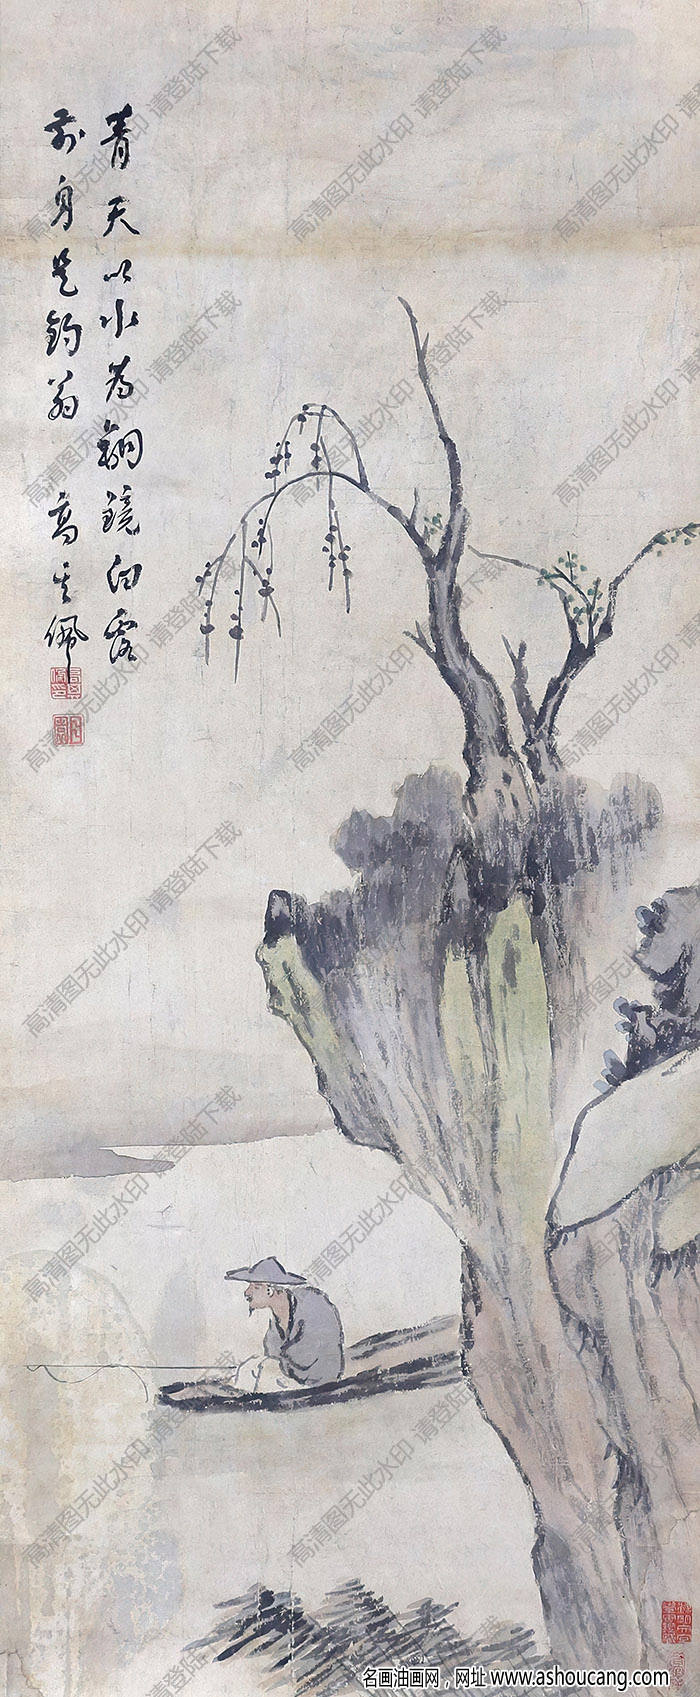 青天以水為銅鏡白露
前身是釣翁 高其佩
高清图无此水印 请登陆下载
名画油画网，网址 www.ashoucang.com